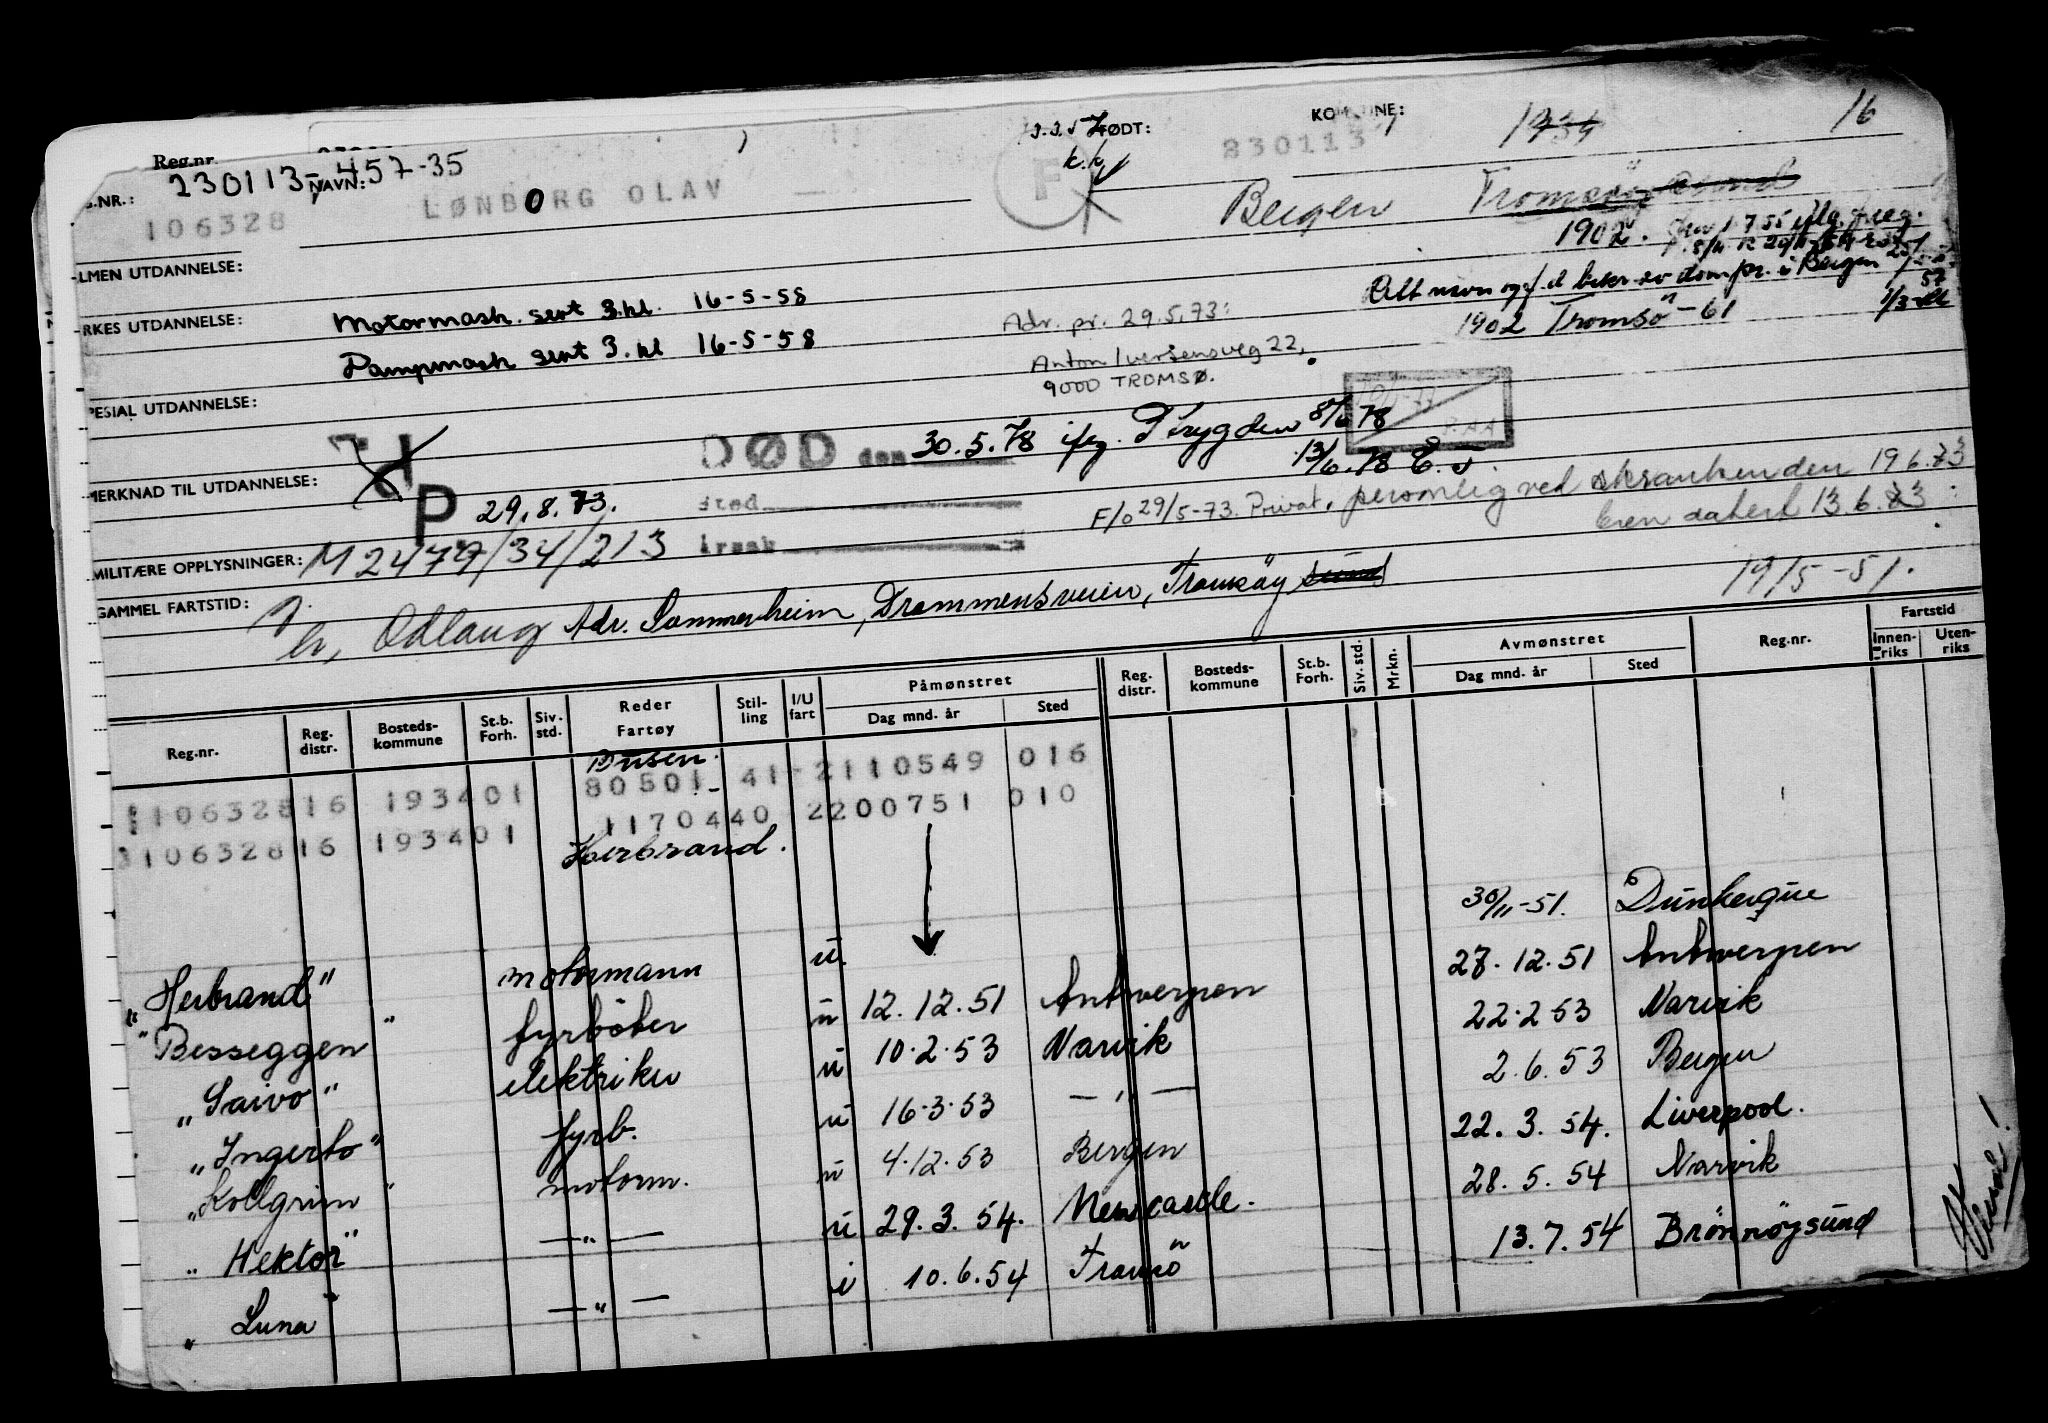 Reg.nr. 230113-457-35
NAVN: LØNBORG OLAV
FØDT: 830113
KOMMUNE: 1934 16
G.NR.: 106328
k.k. F
Bergen Tromsöysund
1902.
LMEN UTDANNELSE:
Alt navn og f.d. bekr. av dompr. i Bergen
RKES UTDANNELSE: Motormask. sert 3.kl. 16-5-58
Adr. pr. 29.5.73:
1902 Tromsö -61
Dampmask sert 3. kl 16-5-58
Anton Iversensveg 22,
9000 TROMSØ.
PESIAL UTDANNELSE:
DØD den 30.5.78 ifg. Trygden 8/6 78
13/6.78 E.T.
MERKNAD TIL UTDANNELSE:
P 29.8.73.
sted
F/o 29/5-73. Privat, personlig ved skranken den 19.6.73
datert 13.6.73
årsak
MILITÆRE OPPLYSNINGER: M 2479/34/213
GAMMEL FARTSTID:
h, Odlaug Adr. Sommerheim, Drammensveien, Tromsöysund
19/5-51.
Reg.nr. Reg. distr. Bosteds- kommune St.b. Forh. Siv. std. Reder Fartøy Stil- ling I/U fart Påmønstret Dag mnd. år Sted Reg. distr. Bosteds- kommune St.b. Forh. Siv. std. Mrkn. Avmønstret Dag mnd. år Sted Reg.nr. Fartstid Innen- riks Uten- riks
110632816 193401 80501 41-2110549 016
110632816 193401 1170440 2200751 010
Herbrand.
30/11-51. Dunkerque
"Herbrand" motormann u 27.12.51 Antwerpen
"Besseggen" fyrböter u 12.12.51 Antwerpen 22.2 53 Narvik
"Saivo" elektriker u 10.2.53 Narvik 2.6.53 Bergen
"Ingerto" fyrb. u 16.3.53 — " — 22.3.54. Liverpool.
"Kollgrim" motorm. u 4.12.53 Bergen 28.5.54 Narvik
"Hektor" — " — u 29.3.54. Newcastle. 13.7.54 Brönnöysund
"Luna" — " — i 10.6.54 Tromsö